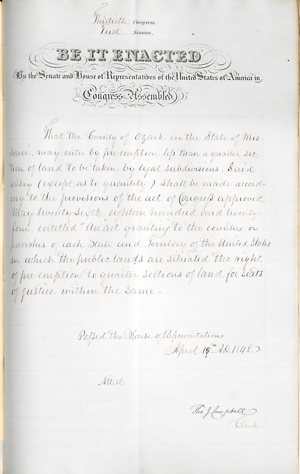 Thirtieth Congress,
First Session.
BE IT ENACTED
By the Senate and House of Representatives of the United States of America in
Congress Assembled,
That the County of Ozark in the State of Mis
souri, may enter by pre-emption less than a quarter sec
tion of land to be taken by legal subdivisions. Said
entry (except as to quantity) shall be made accord-
ing to the provisions of the act of Congress approved
May twenty sixth, eighteen hundred and twenty-
four entitled "An act granting to the counties or
parishes of each State and Territory of the United States
in which the public lands are situated the right
of pre-emption to quarter sections of land for seats
of justice within the same.
Passed the House of Representatives
April 19th AD. 1848.
Attest
Tho. J. Campbell
Clerk